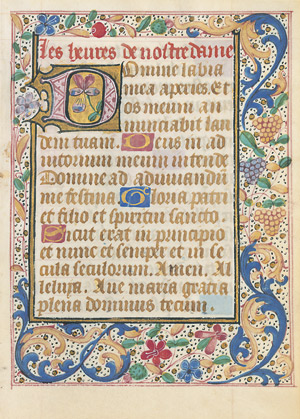 Les heures de nostre dame
Domine labia
mea aperies. Et
os meum an
nunciabit lau
dem tuam. Deus in ad
iutorium meum intende
Domine ad adiuuandum
me festina. Gloria patri
et filio et spiritui sancto
Sicut erat in principio
et nunc et semper et in se
cula seculorum. Amen. Al
leluya. Aue maria gracia
plena dominus tecum.